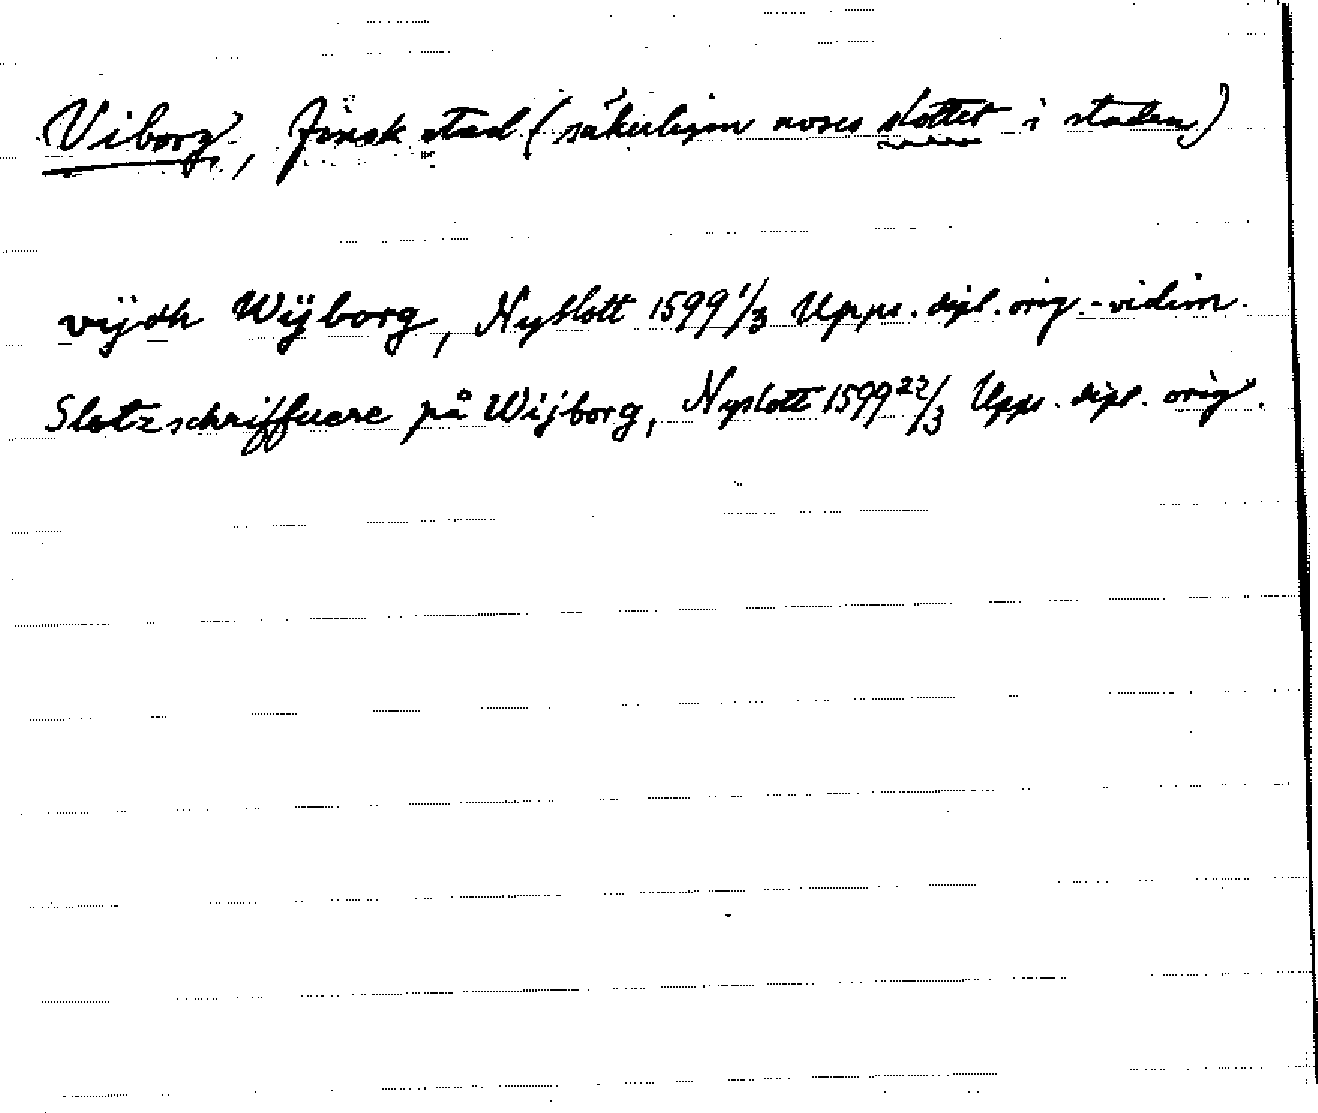 Viborg, finsk stad (säkerligen avses slottet i staden)
vijdh Wijborg, Nyslott 1599 1/3 Upps. dipl. orig.-vidim.
Slotzschriffuere på Wijborg, Nyslott 1599 22/3 Upps. dipl. orig.